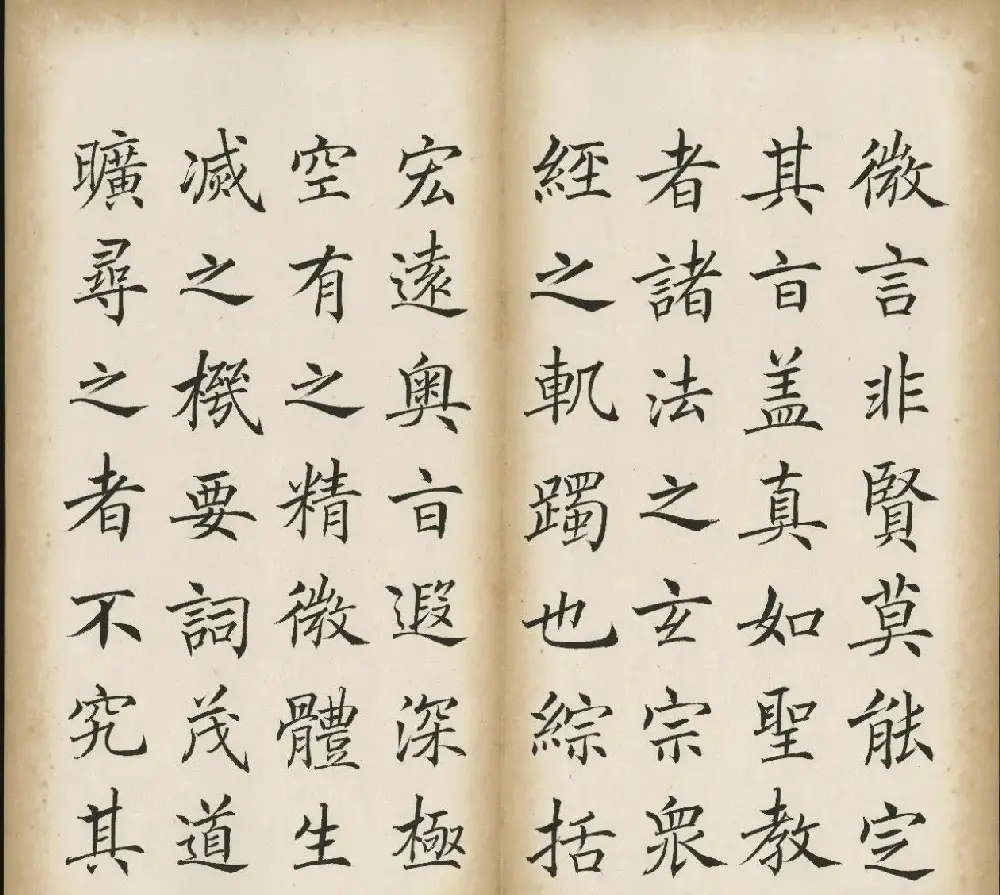 微言非賢莫能定
其旨蓋真如聖教
者諸法之玄宗眾
經之軌躅也綜括
宏遠奧旨遐深極
空有之精微體生
滅之機要詞茂道
曠尋之者不究其